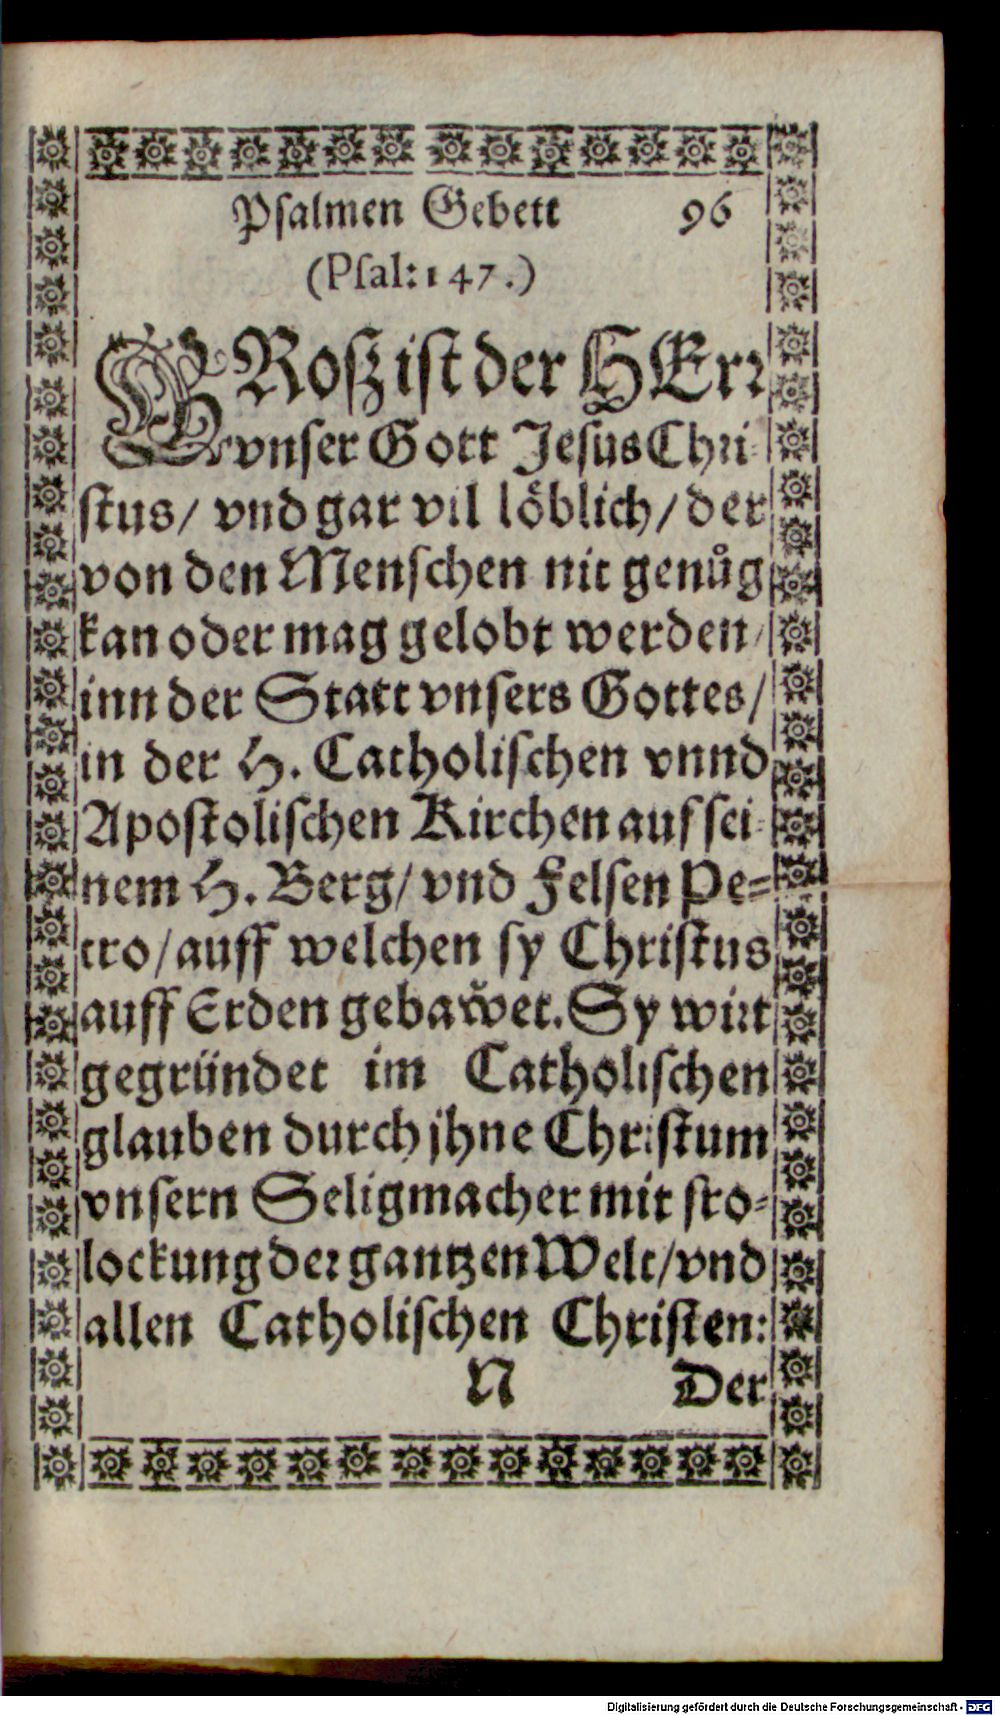 Psalmen Gebett 96
(Psal: 147.)
GRosz ist der HErr
vnser Gott Jesus Chri-
stus/ vnd gar vil löblich/ der
von den Menschen nit genůg
kan oder mag gelobt werden/
inn der Statt vnsers Gottes/
in der H. Catholischen vnnd
Apostolischen Kirchen auf sei-
nem H. Berg/ vnd Felsen Pe-
tro/ auff welchen sy Christus
auff Erden gebawet. Sy wirt
gegründet im Catholischen
glauben durch jhne Christum
vnsern Seligmacher mit fro-
lockung der gantzen Welt/ vnd
allen Catholischen Christen:
N Der
Digitalisierung gefördert durch die Deutsche Forschungsgemeinschaft - DFG